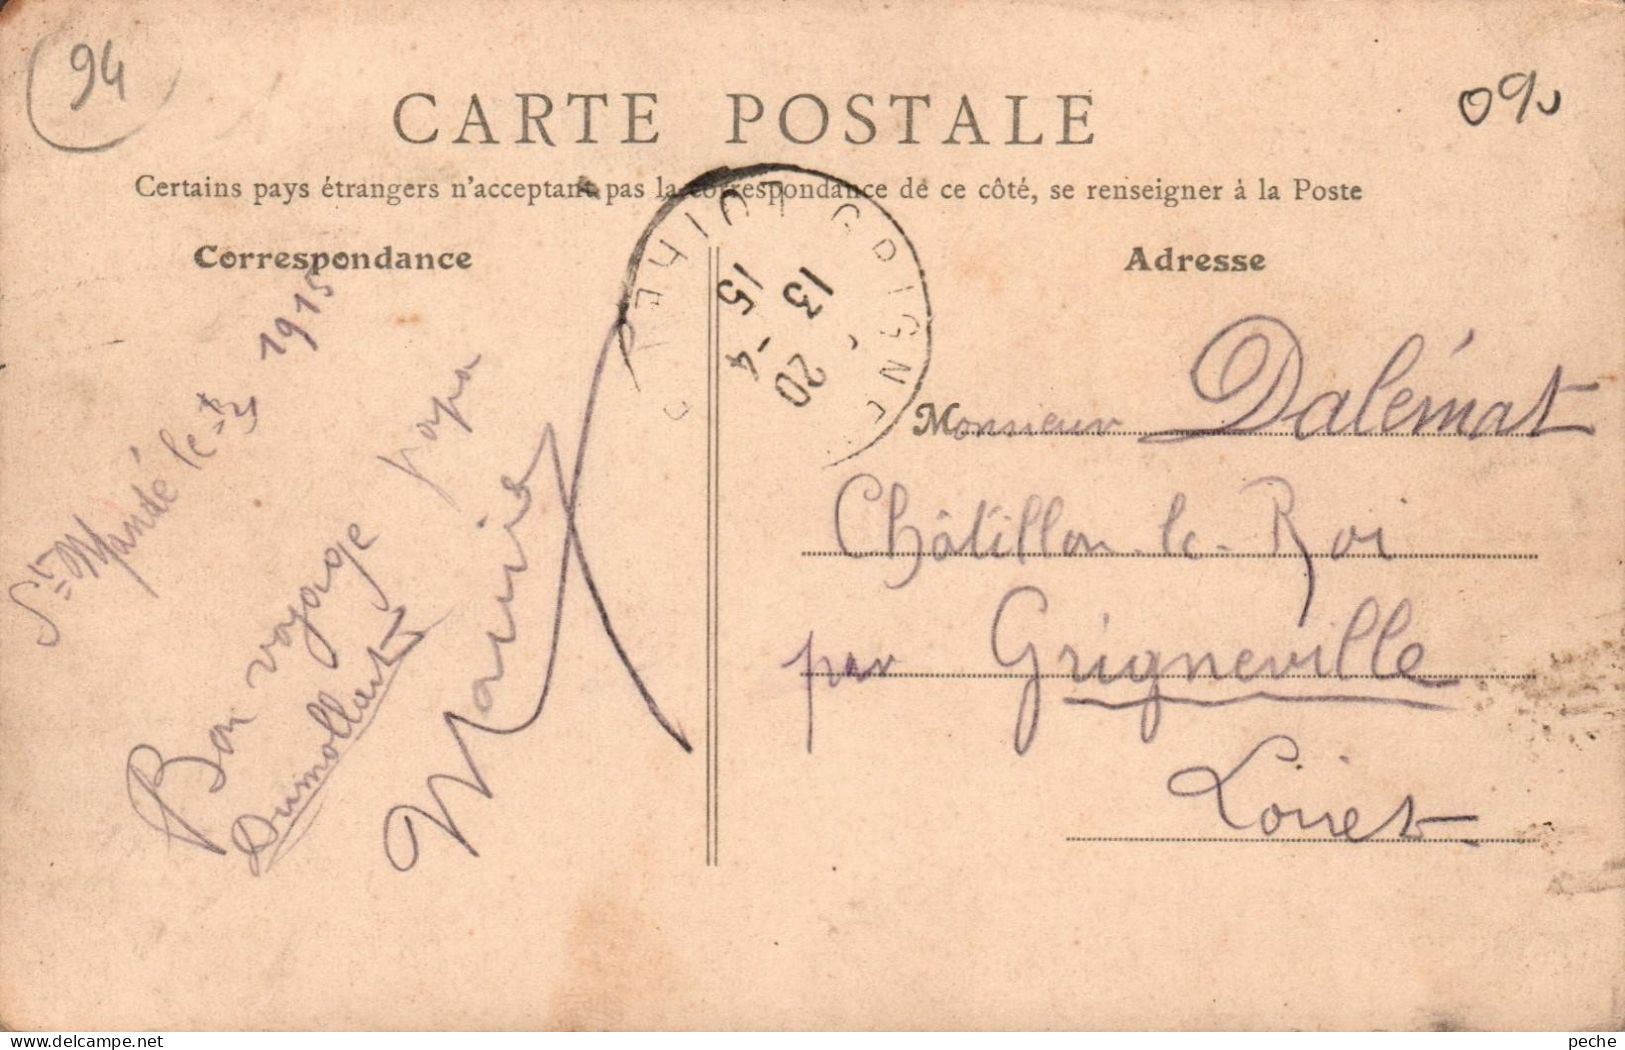 94
09
CARTE POSTALE
Certains pays étrangers n'acceptant pas la correspondance de ce côté, se renseigner à la Poste
Correspondance
Adresse
St Mandé le 1915
Bon voyage papa
Dumollart
Maurice
GRIGNE
LOIRET
13
20
15-4
Monsieur Dalémat
Châtillon-le-Roi
par Grigneville
Loiret
peche